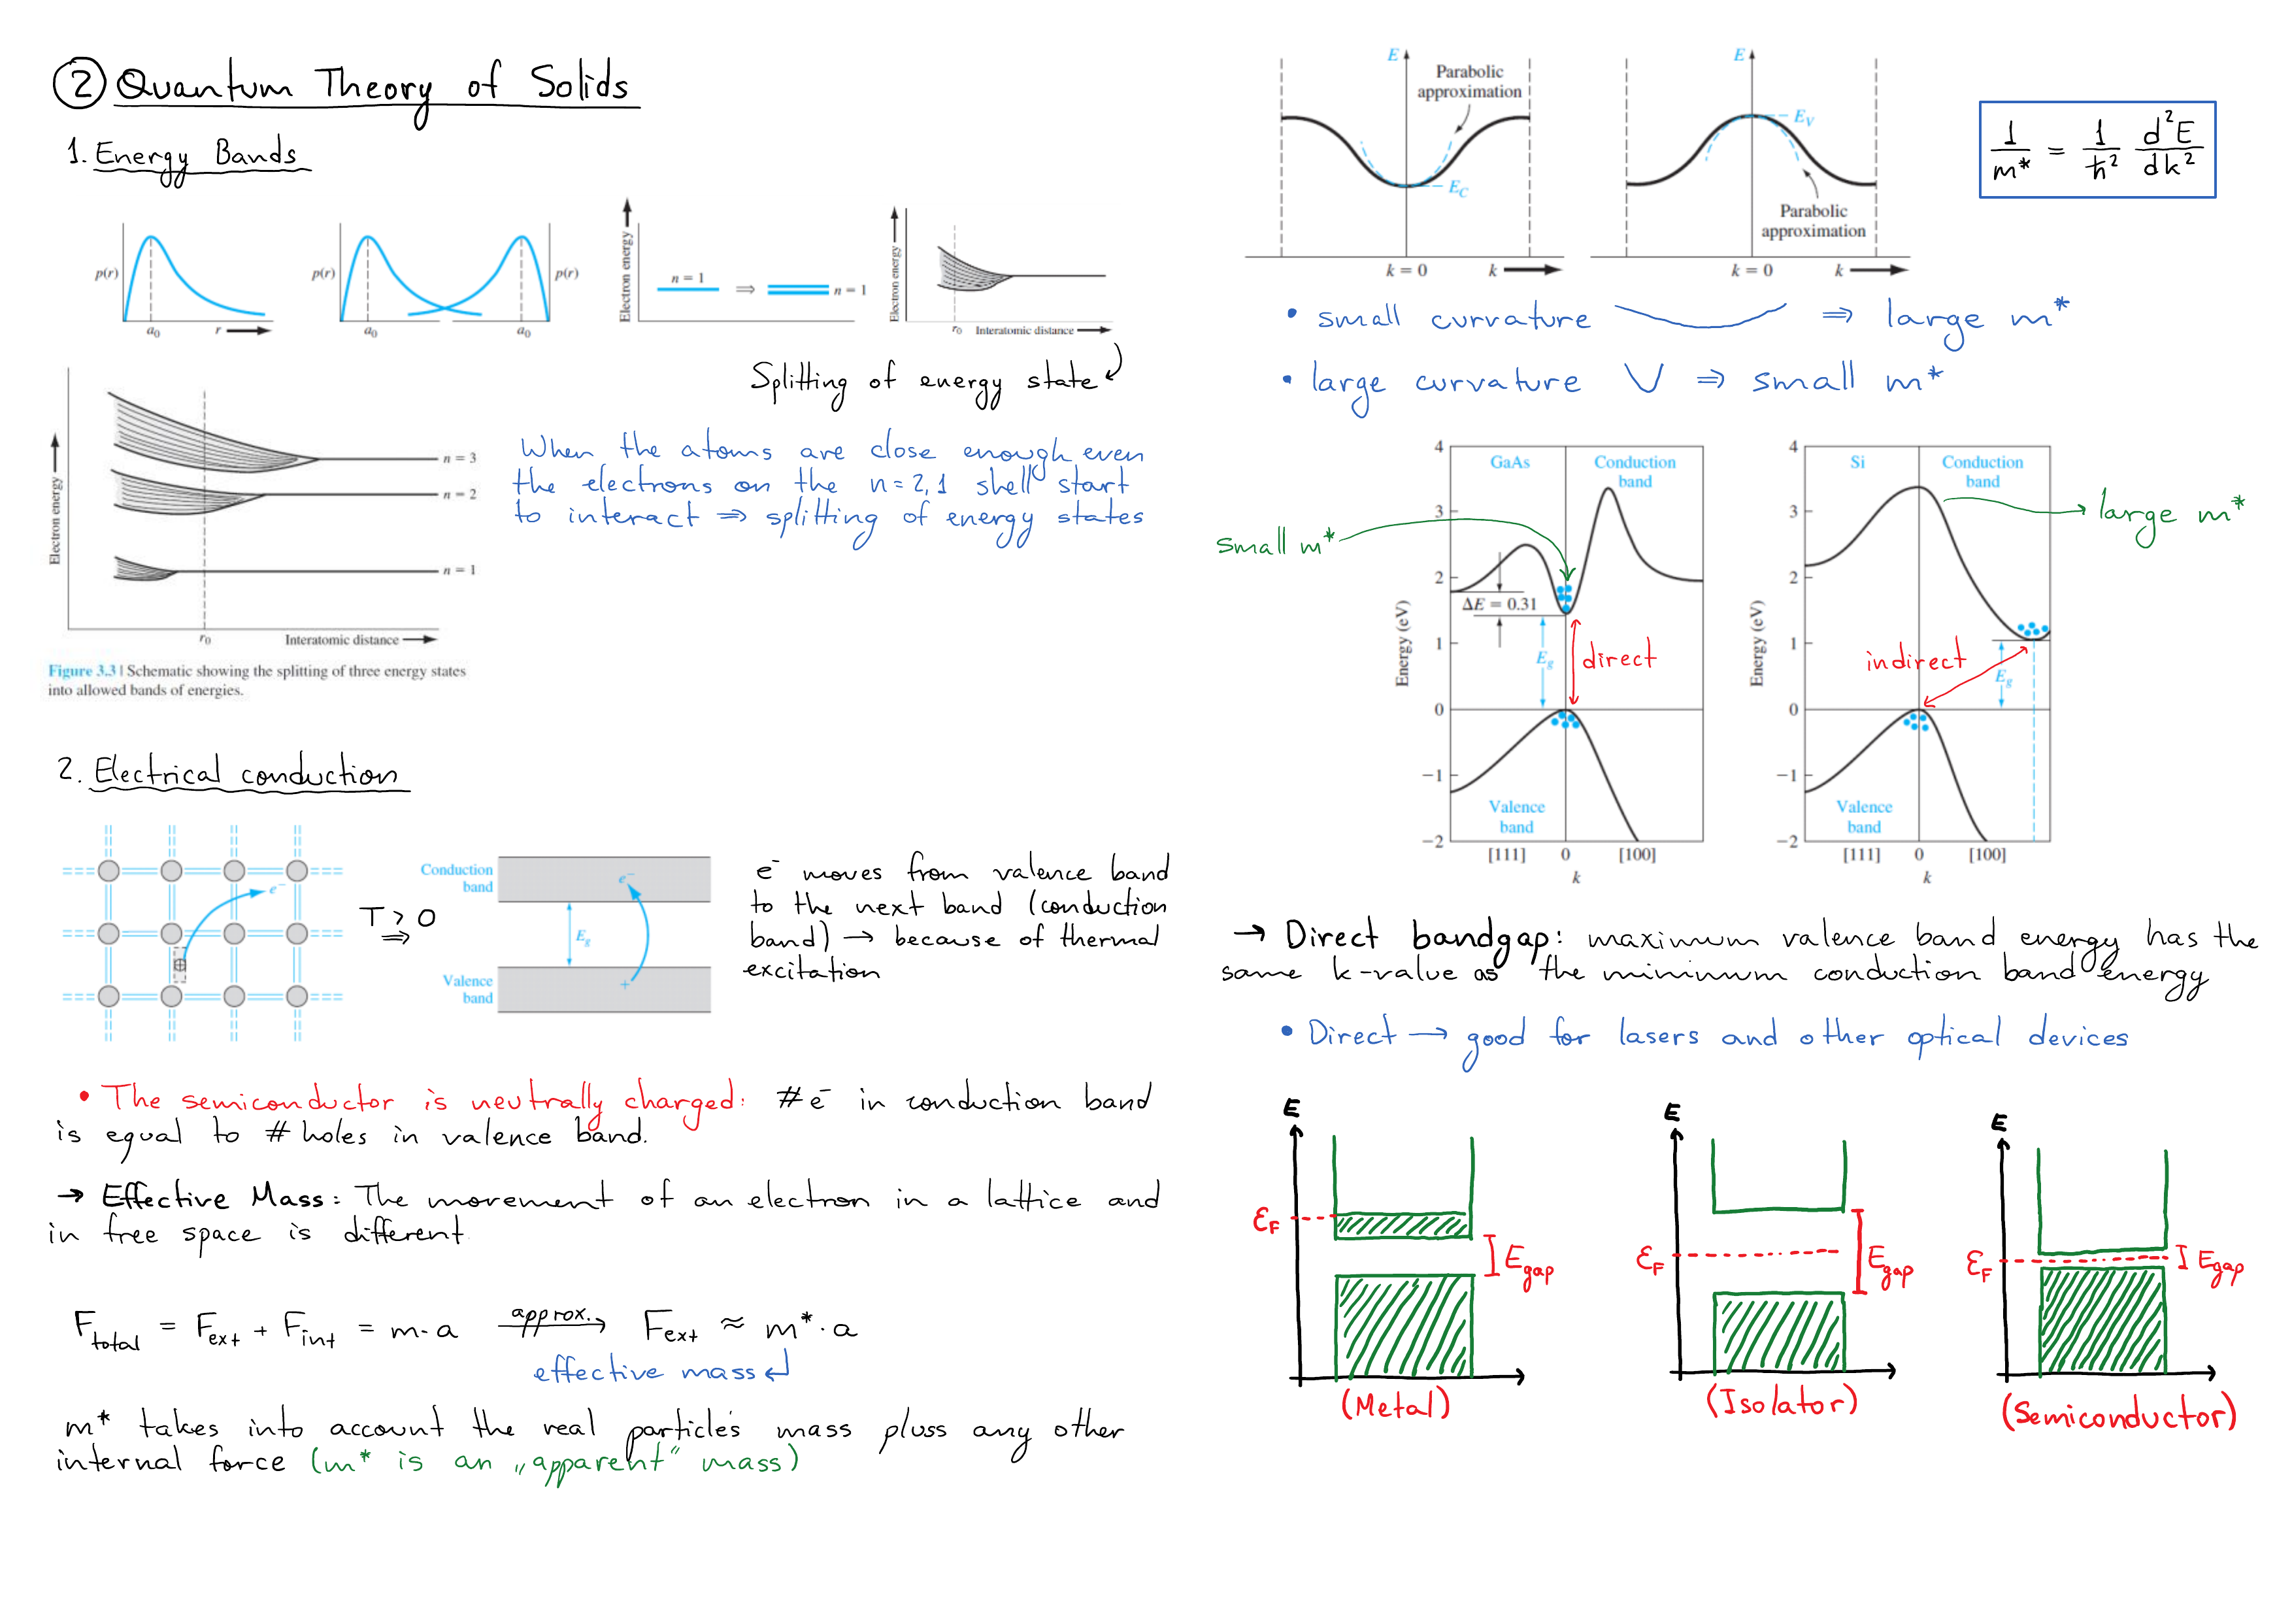 ② Quantum Theory of Solids
1. Energy Bands
p(r)
a₀
r
p(r)
p(r)
a₀
a₀
Electron energy
n = 1
⇒
n = 1
Electron energy
r₀
Interatomic distance
Splitting of energy state
Electron energy
n = 3
n = 2
n = 1
r₀
Interatomic distance
Figure 3.3 | Schematic showing the splitting of three energy states
into allowed bands of energies.
When the atoms are close enough even
the electrons on the n = 2, 1 shell start
to interact ⇒ splitting of energy states
2. Electrical conduction
e⁻
T > 0
⇒
Conduction
band
e⁻
E_g
Valence
band
+
e⁻ moves from valence band
to the next band (conduction
band) → because of thermal
excitation
• The semiconductor is neutrally charged: # e⁻ in conduction band
is equal to # holes in valence band.
→ Effective Mass: The movement of an electron in a lattice and
in free space is different.
F_total = F_ext + F_int = m · a approx. → F_ext ≈ m* · a
effective mass
m* takes into account the real particle's mass pluss any other
internal force (m* is an „apparent" mass)
E
Parabolic
approximation
E_C
k = 0
k
E
E_V
Parabolic
approximation
k = 0
k
1/m* = 1/ħ² d²E/dk²
• small curvature ⇒ large m*
• large curvature ⇒ small m*
4
3
2
1
0
−1
−2
Energy (eV)
GaAs
Conduction
band
small m*
ΔE = 0.31
E_g
direct
Valence
band
[111]
0
[100]
k
4
3
2
1
0
−1
−2
Energy (eV)
Si
Conduction
band
large m*
indirect
E_g
Valence
band
[111]
0
[100]
k
→ Direct bandgap: maximum valence band energy has the
same k-value as the minimum conduction band energy
• Direct → good for lasers and other optical devices
E
ε_F
E_gap
(Metal)
E
ε_F
E_gap
(Isolator)
E
ε_F
E_gap
(Semiconductor)